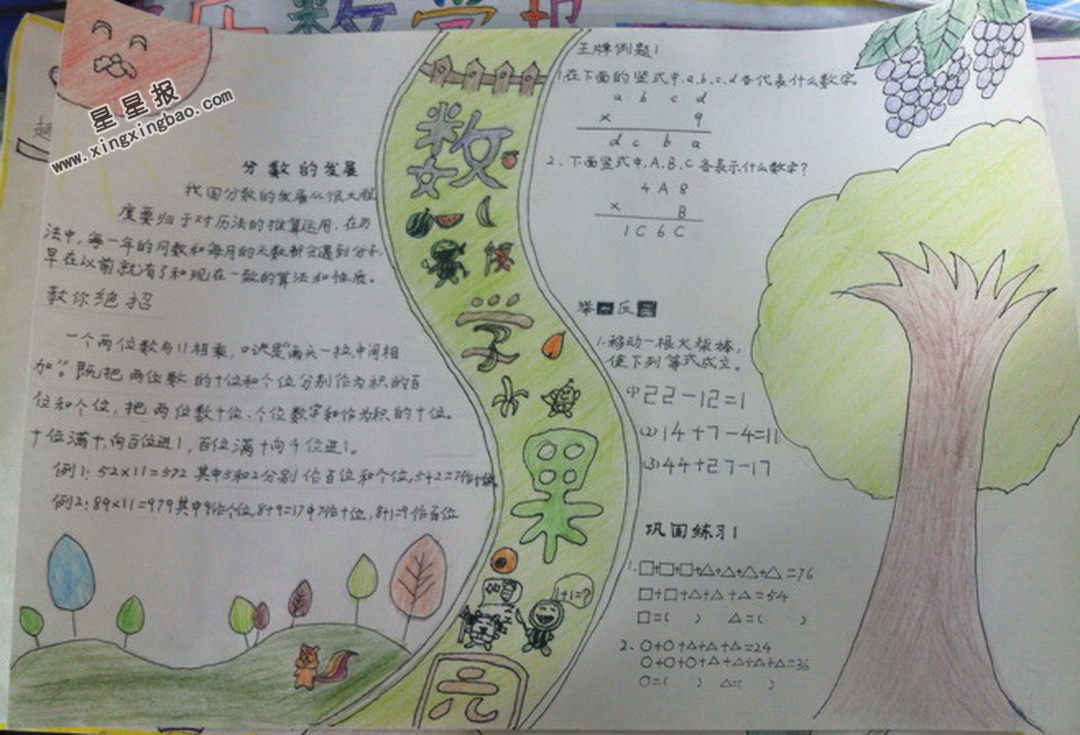 乐数学报
趣
星星报
www.xingxingbao.com
分数的发展
我国分数的发展从很大程
度要归于对历法的推算运用。在历
法中,每一年的月数和每月的天数都会遇到分子,
早在以前就有了和现在一致的算法和性质。
教你绝招
一个两位数与11相乘,口诀是“两头一拉,中间相
加”。既把两位数的十位和个位分别作为积的百
位和个位,把两位数十位、个位数字和作为积的十位。
十位满十,向百位进1,百位满十向千位进1。
例1:52×11=572 其中5和2分别作百位和个位,5+2=7作十位
例2:89×11=979其中9作个位,8+9=17中7作十位,8+1=9作百位
数
学
果
1+1=?
园
王牌例题1
1.在下面的竖式中,a、b、c、d各代表什么数字。
a b c d
× 9
d c b a
2、下面竖式中,A、B、C各表示什么数字?
4 A 8
× B
1 C 6 C
举一反三
1.移动一根火柴棒,
使下列等式成立。
(1)22-12=1
(2)14+7-4=11
(3)44+27-17
巩固练习1
1.□+□+□+△+△+△+△=76
□+□+△+△+△=54
□=( ) △=( )
2、○+○+△+△+△=24
○+○+○+△+△+△+△=36
○=( ) △=( )